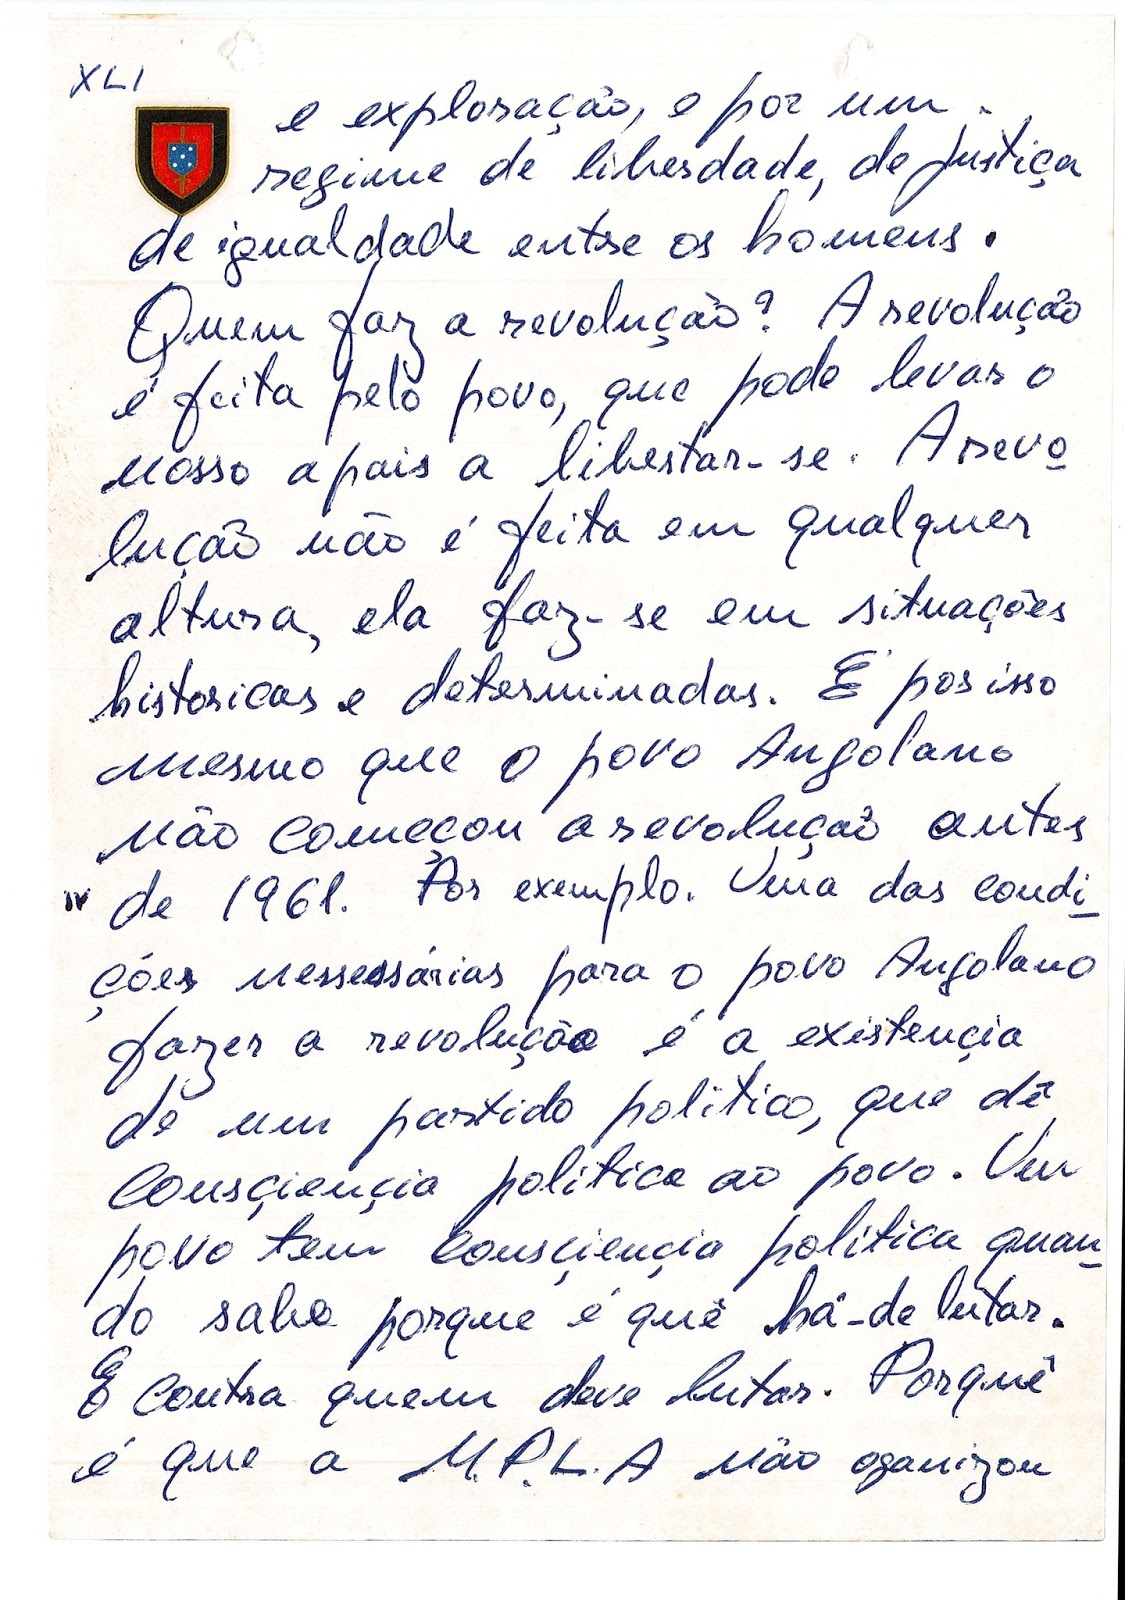 XLI
e exploração, e por um
regime de liberdade, de justiça
de igualdade entre os homens.
Quem faz a revolução? A revolução
é feita pelo povo, que pode levar o
nosso a pais a libertar-se. A revo
lução não é feita em qualquer
altura, ela faz-se em situações
historicas e determinadas. É por isso
mesmo que o povo Angolano
não começou a revolução antes
IV de 1961. Por exemplo. Uma das condi
ções nessessárias para o povo Angolano
fazer a revolução é a existencia
de um partido politico, que dê
consçiençia politica ao povo. Um
povo tem consçiençia politica quan
do sabe porque é quê há-de lutar.
E contra quem deve lutar. Porquê
é que a M.P.L.A não oganizou